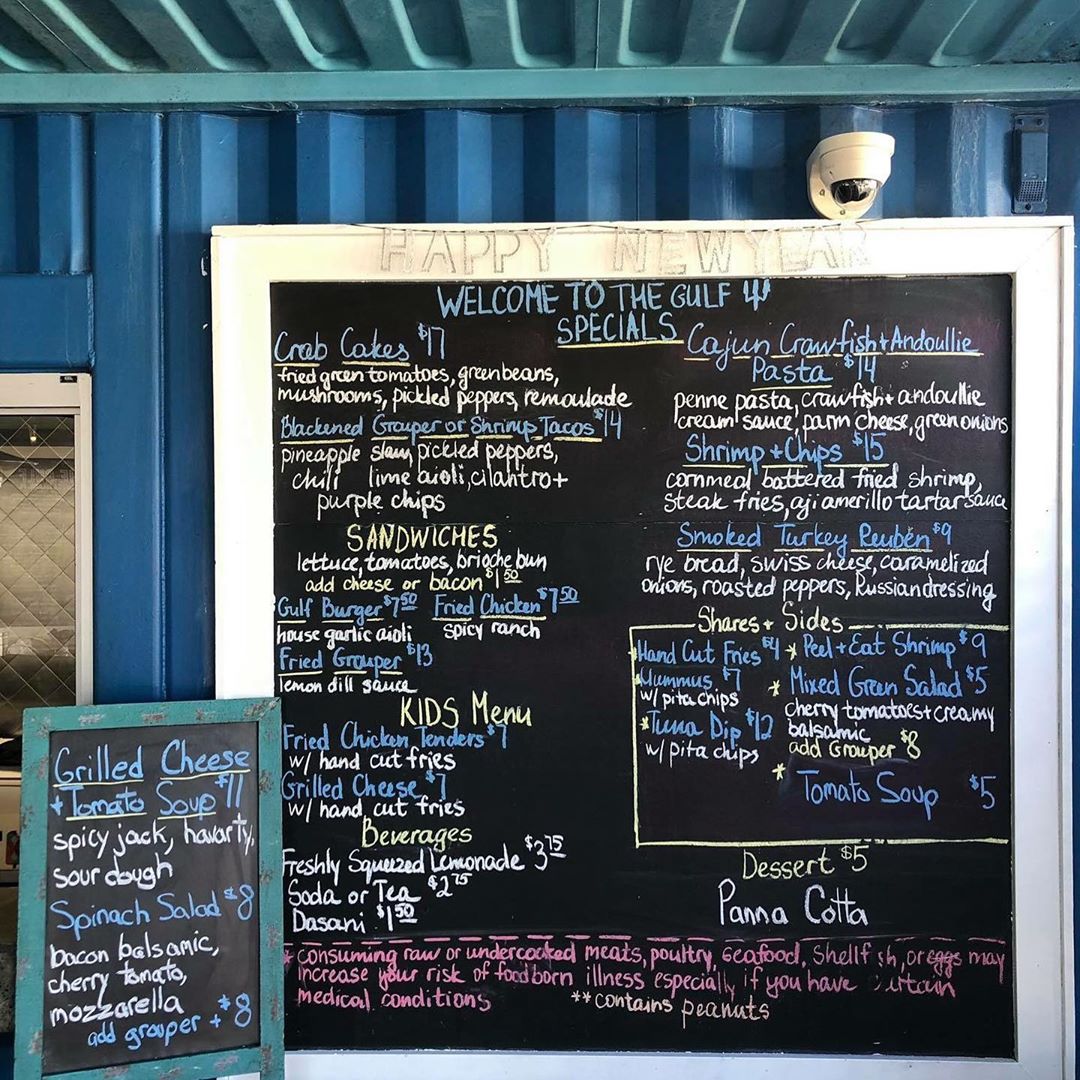 HAPPY NEW YEAR
WELCOME TO THE GULF
SPECIALS
Crab Cakes $17
fried green tomatoes, green beans,
mushrooms, pickled peppers, remoulade
Blackened Grouper or Shrimp Tacos $14
pineapple slaw, pickled peppers,
chili lime aioli, cilantro +
purple chips
SANDWICHES
lettuce, tomatoes, brioche bun
add cheese or bacon $1.50
Gulf Burger $7.50
house garlic aioli
Fried Chicken $7.50
spicy ranch
Fried Grouper $13
lemon dill sauce
KIDS Menu
Fried Chicken Tenders $7
w/ hand cut fries
Grilled Cheese $7
w/ hand cut fries
Beverages
Freshly Squeezed Lemonade $3.75
Soda or Tea $2.75
Dasani $1.50
Cajun Crawfish + Andoullie
Pasta $14
penne pasta, crawfish + andoullie
cream sauce, parm cheese, green onions
Shrimp + Chips $15
cornmeal battered fried shrimp,
steak fries, aji amerillo tartar sauce
Smoked Turkey Reuben $9
rye bread, swiss cheese, caramelized
onions, roasted peppers, Russian dressing
Shares + Sides
* Hand Cut Fries $4
* Hummus $7
w/ pita chips
* Tuna Dip $12
w/ pita chips
* Peel + Eat Shrimp $9
* Mixed Green Salad $5
cherry tomatoes + creamy
balsamic
add Grouper $8
* Tomato Soup $5
Dessert $5
Panna Cotta
* consuming raw or undercooked meats, poultry, seafood, shellf sh, or eggs may
increase your risk of foodborn illness especially if you have
medical conditions
** contains peanuts
Grilled Cheese
+ Tomato Soup $11
spicy jack, havarty,
sour dough
Spinach Salad $8
bacon balsamic,
cherry tomato,
mozzarella
add grouper + $8